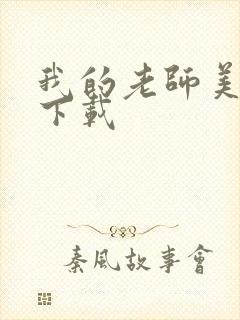 我的老師美
下載
秦風故事會